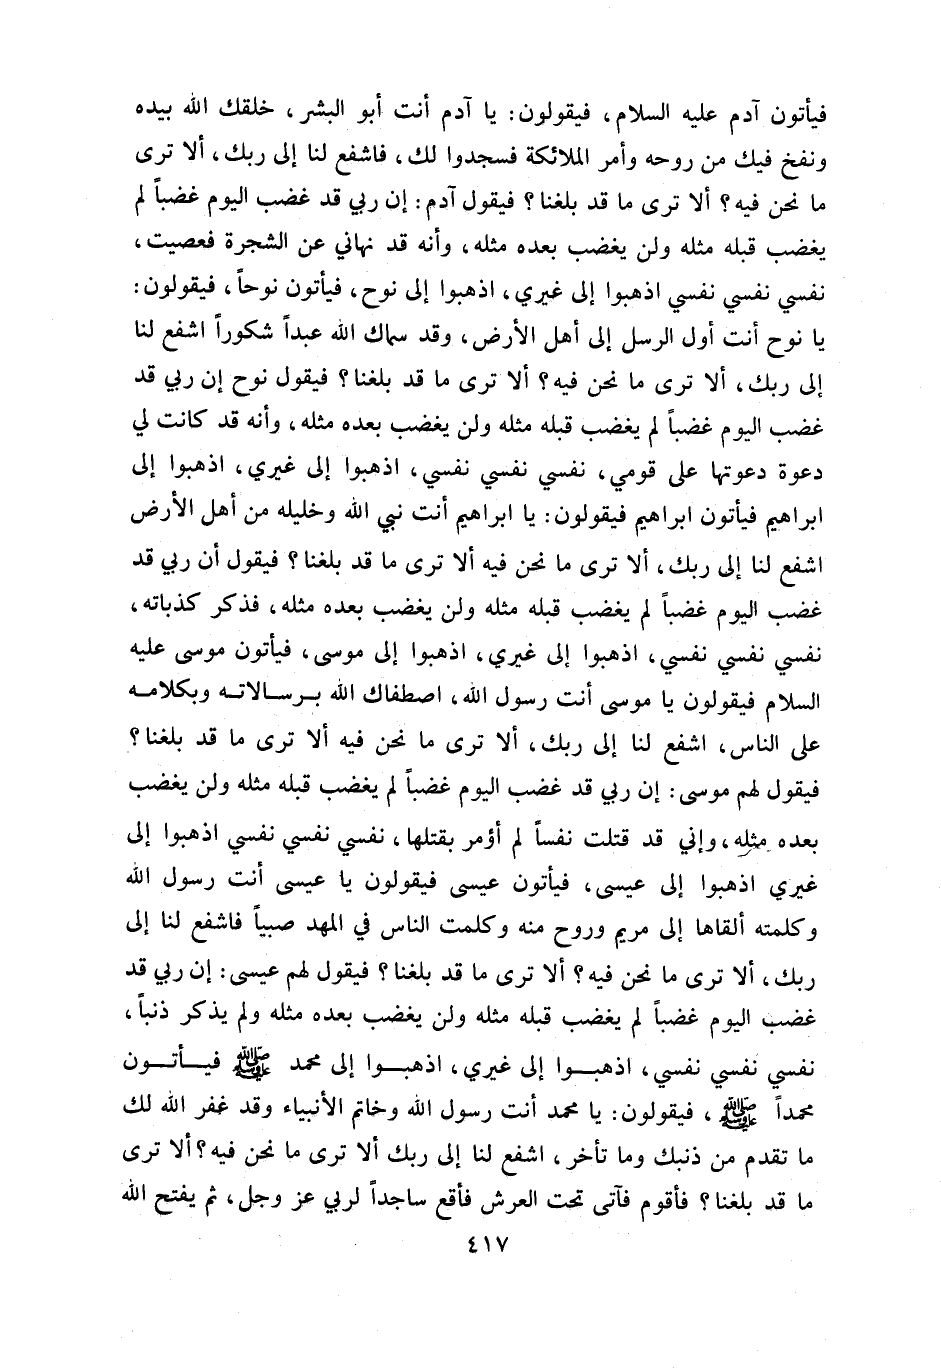 فيأتون آدم عليه السلام، فيقولون: يا آدم أنت أبو البشر، خلقك الله بيده
ونفخ فيك من روحه وأمر الملائكة فسجدوا لك، فاشفع لنا إلى ربك، ألا ترى
ما نحن فيه؟ ألا ترى ما قد بلغنا؟ فيقول آدم: إن ربي قد غضب اليوم غضباً لم
يغضب قبله مثله ولن يغضب بعده مثله، وأنه قد نهاني عن الشجرة فعصيت،
نفسي نفسي نفسي اذهبوا إلى غيري، اذهبوا إلى نوح، فيأتون نوحاً، فيقولون:
يا نوح أنت أول الرسل إلى أهل الأرض، وقد سماك الله عبداً شكوراً اشفع لنا
إلى ربك، ألا ترى ما نحن فيه؟ ألا ترى ما قد بلغنا؟ فيقول نوح إن ربي قد
غضب اليوم غضباً لم يغضب قبله مثله ولن يغضب بعده مثله، وأنه قد كانت لي
دعوة دعوتها على قومي، نفسي نفسي نفسي، اذهبوا إلى غيري، اذهبوا إلى
ابراهيم فيأتون ابراهيم فيقولون: يا ابراهيم أنت نبي الله وخليله من أهل الأرض
اشفع لنا إلى ربك، ألا ترى ما نحن فيه ألا ترى ما قد بلغنا؟ فيقول أن ربي قد
غضب اليوم غضباً لم يغضب قبله مثله ولن يغضب بعده مثله، فذكر كذباته،
نفسي نفسي نفسي، اذهبوا إلى غيري، اذهبوا إلى موسى، فيأتون موسى عليه
السلام فيقولون يا موسى أنت رسول الله، اصطفاك الله برسالاته وبكلامه
على الناس، اشفع لنا إلى ربك، ألا ترى ما نحن فيه ألا ترى ما قد بلغنا؟
فيقول لهم موسى: إن ربي قد غضب اليوم غضباً لم يغضب قبله مثله ولن يغضب
بعده مثله، وإني قد قتلت نفساً لم أؤمر بقتلها، نفسي نفسي نفسي اذهبوا إلى
غيري اذهبوا إلى عيسى، فيأتون عيسى فيقولون يا عيسى أنت رسول الله
وكلمته ألقاها إلى مريم وروح منه وكلمت الناس في المهد صبياً فاشفع لنا إلى
ربك، ألا ترى ما نحن فيه؟ ألا ترى ما قد بلغنا؟ فيقول لهم عيسى: إن ربي قد
غضب اليوم غضباً لم يغضب قبله مثله ولن يغضب بعده مثله ولم يذكر ذنباً،
نفسي نفسي نفسي، اذهبوا إلى غيري، اذهبوا إلى محمد ﷺ فيأتون
محمداً ﷺ، فيقولون: يا محمد أنت رسول الله وخاتم الأنبياء وقد غفر الله لك
ما تقدم من ذنبك وما تأخر، اشفع لنا إلى ربك ألا ترى ما نحن فيه؟ ألا ترى
ما قد بلغنا؟ فأقوم فآتى تحت العرش فأقع ساجداً لربي عز وجل، ثم يفتح الله
٤١٧